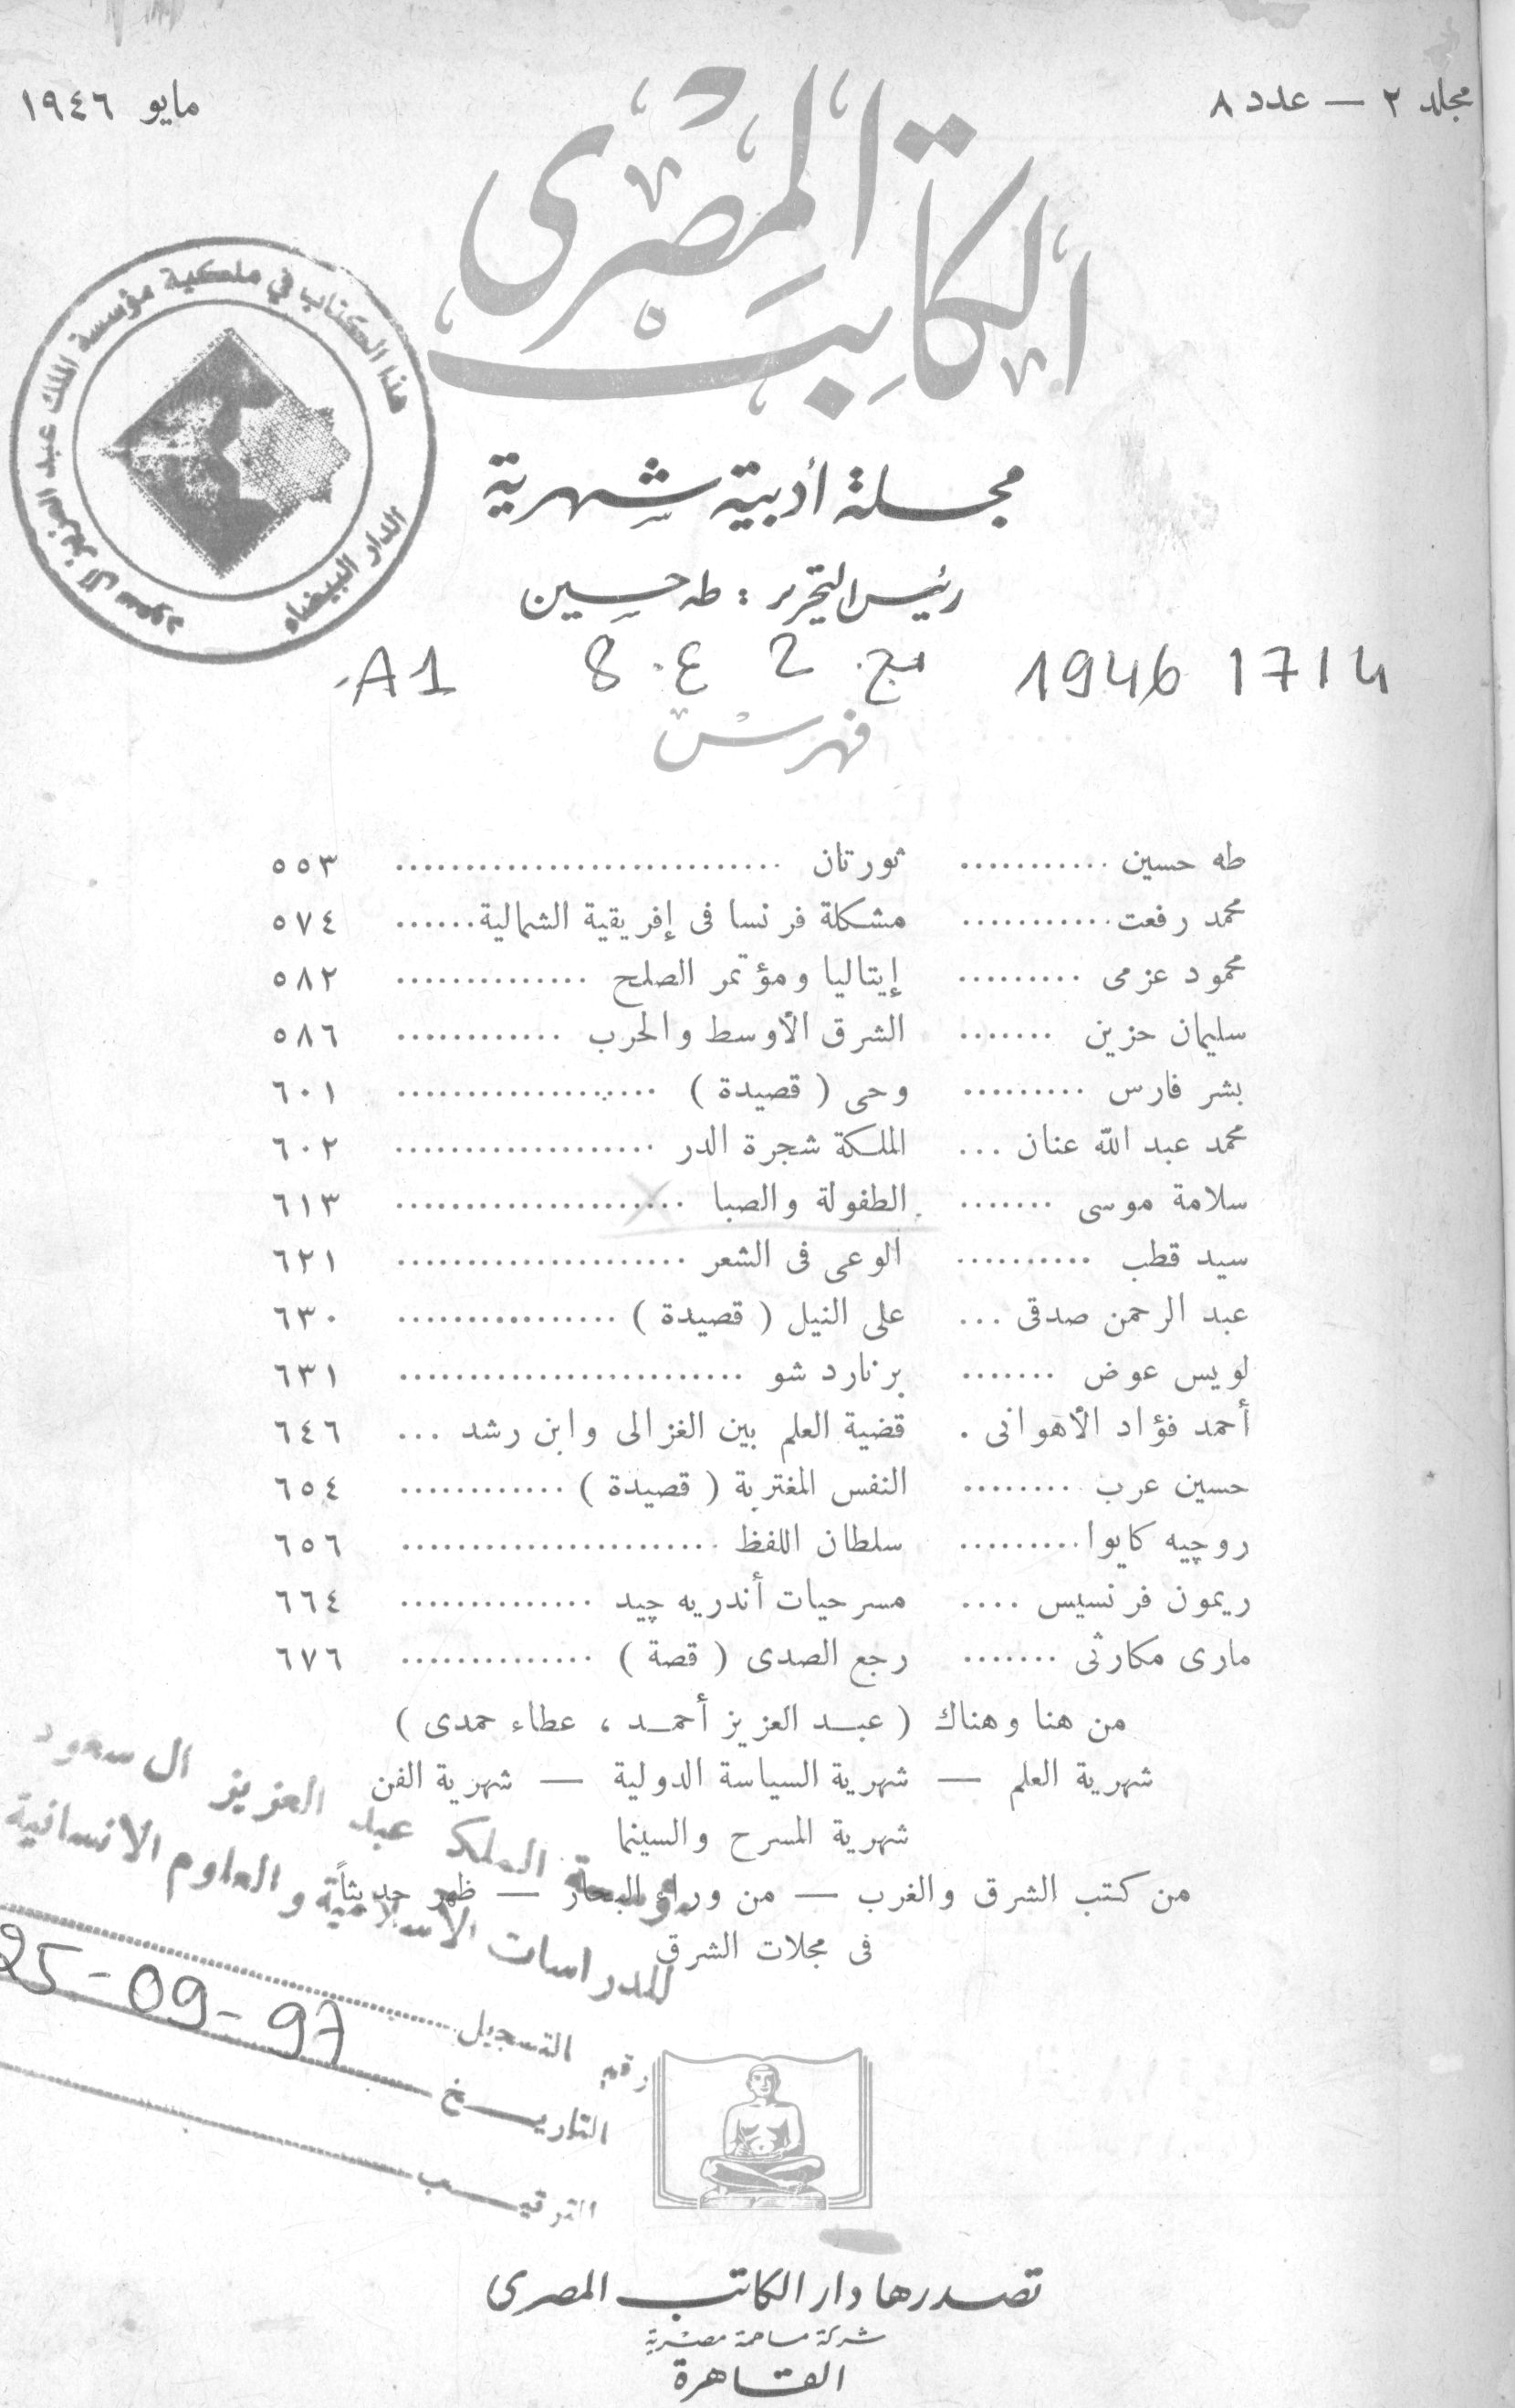 مجلد ٢ — عدد ٨
مايو ١٩٤٦
الكاتب المصرى
مجلة أدبية شهرية
رئيس التحرير : طه حسين
هذا الكتاب في ملكية مؤسسة الملك عبد العزيز آل سعود
الدار البيضاء
1714 1946 مج. 2 ع. 8 A1
فهرس
طه حسين ........... ثورتان ........................... ٥٥٣
محمد رفعت ........... مشكلة فرنسا فى إفريقية الشمالية ...... ٥٧٤
محمود عزمى ......... إيتاليا ومؤتمر الصلح .............. ٥٨٢
سليمان حزين ....... الشرق الأوسط والحرب ............ ٥٨٦
بشر فارس ......... وحى ( قصيدة ) ................... ٦٠١
محمد عبد الله عنان ... الملكة شجرة الدر ................... ٦٠٢
سلامة موسى ....... الطفولة والصبا ..................... ٦١٣
سيد قطب .......... الوعى فى الشعر ..................... ٦٢١
عبد الرحمن صدقى ... على النيل ( قصيدة ) ................ ٦٣٠
لويس عوض ....... برنارد شو ......................... ٦٣١
أحمد فؤاد الأهوانى . قضية العلم بين الغزالى وابن رشد ... ٦٤٦
حسين عرب ......... النفس المغتربة ( قصيدة ) ............ ٦٥٤
روچيه كايوا ......... سلطان اللفظ ....................... ٦٥٦
ريمون فرنسيس .... مسرحيات أندريه چيد .............. ٦٦٤
مارى مكارثى ....... رجع الصدى ( قصة ) .............. ٦٧٦
من هنا وهناك ( عبد العزيز أحمد ، عطاء حمدى )
شهرية العلم — شهرية السياسة الدولية — شهرية الفن
شهرية المسرح والسينما
من كتب الشرق والغرب — من وراء البحار — ظهر حديثاً
فى مجلات الشرق
مؤسسة الملك عبد العزيز ال سعود
للدراسات الاسلامية و العلوم الانسانية
رقم التسجيل
التاريخ 25-09-97
الترتيب
تصدرها دار الكاتب المصرى
شركة مساهمة مصرية
القاهرة